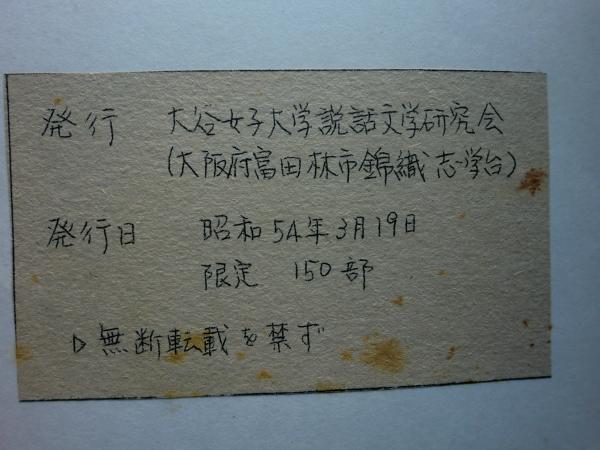 発行 大谷女子大学説話文学研究会
(大阪府富田林市錦織志学台)
発行日 昭和54年3月19日
限定 150部
▷無断転載を禁ず